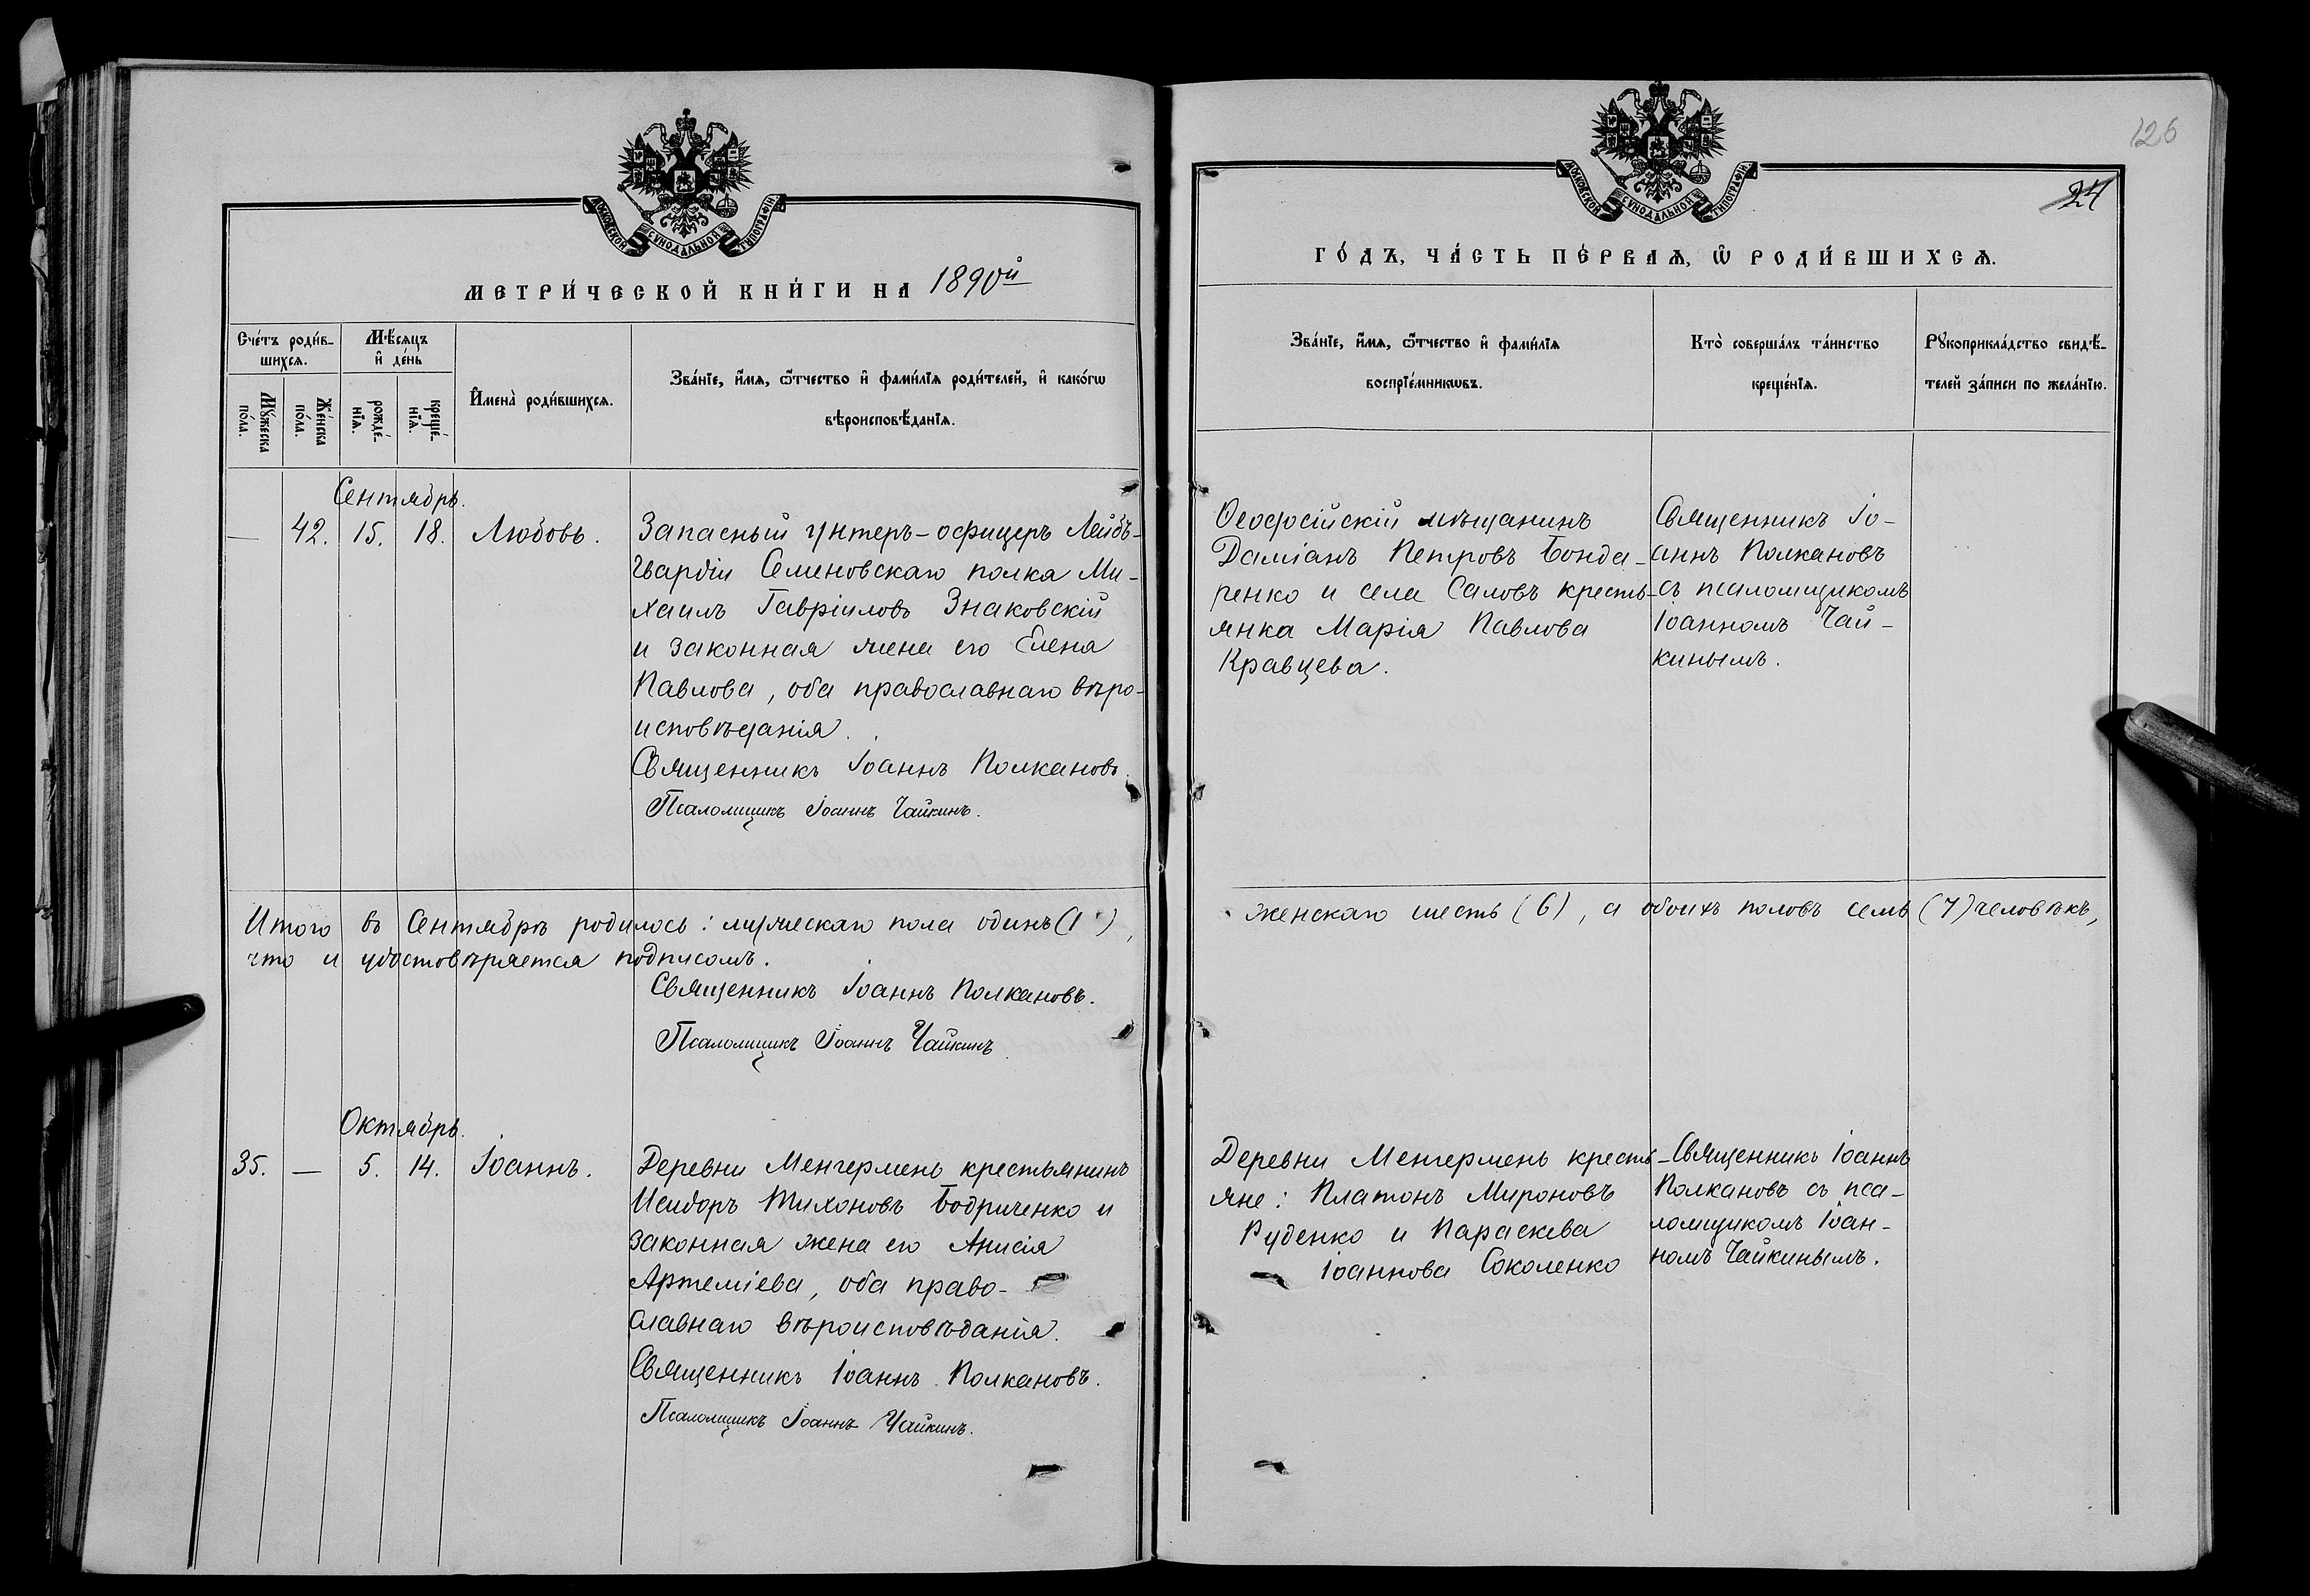 МОСКОВСКОЙ СѴНОДАЛЬНОЙ ТИПОГРАФІИ
МЕТРИ́ЧЕСКОЙ КНИ́ГИ НА 1890й
Сче́тъ роди́в-
шихсѧ.
Мѣ́сѧцъ
и҆ де́нь
Мꙋ́жеска
по́ла.
Же́нска
по́ла.
рожде́-
нїѧ.
креще́-
нїѧ.
И҆мена̀ роди́вшихсѧ.
Зва́нїе, и҆́мѧ, ѻ҆́тчество и҆ фами́лїѧ роди́телей, и҆ како́гѡ
вѣроисповѣ́данїѧ.
Сентябрь.
— 42. 15. 18. Любовь.
Запасный унтеръ-офицеръ Лейбъ-
гвардіи Семеновскаго полка Ми-
хаилъ Гавріиловъ Знаковскій
и законная жена его Елена
Павлова, оба православнаго вѣро-
исповѣданія.
Священникъ Іоаннъ Полкановъ.
Псаломщикъ Іоаннъ Чайкинъ.
Итого въ Сентябрѣ родилось: мужескаго пола одинъ (1),
что и удостовѣряется подписомъ.
Священникъ Іоаннъ Полкановъ.
Псаломщикъ Іоаннъ Чайкинъ
Октябрь.
35. — 5. 14. Іоаннъ.
Деревни Менгермень крестьянинъ
Исидоръ Тихоновъ Бодриченко и
законная жена его Анисія
Артеміева, оба право-
славнаго вѣроисповѣданія.
Священникъ Іоаннъ Полкановъ.
Псаломщикъ Іоаннъ Чайкинъ.
126
24
МОСКОВСКОЙ СѴНОДАЛЬНОЙ ТИПОГРАФІИ
ГО́ДЪ, ЧА́СТЬ ПЕ́РВАѦ, Ѡ҆ РОДИ́ВШИХСѦ.
Зва́нїе, и҆́мѧ, ѻ҆́тчество и҆ фами́лїѧ
воспрїе́мникѡвъ.
Кто̀ соверша́лъ та́инство
креще́нїѧ.
Рꙋкоприкла́дство свидѣ́-
телей за́писи по жела́нїю.
Ѳеодосійскій мѣщанинъ
Даміанъ Петровъ Бонда-
ренко и села Саловъ кресть-
янка Марія Павлова
Кравцева.
Священникъ Іо-
аннъ Полкановъ
съ псаломщикомъ
Іоанномъ Чай-
кинымъ.
женскаго шесть (6), а обоихъ половъ семь (7) человѣкъ,
Деревни Менгермень кресть-
яне: Платонъ Мироновъ
Руденко и Параскева
Іоаннова Соколенко
Священникъ Іоаннъ
Полкановъ съ пса-
ломщикомъ Іоан-
номъ Чайкинымъ.